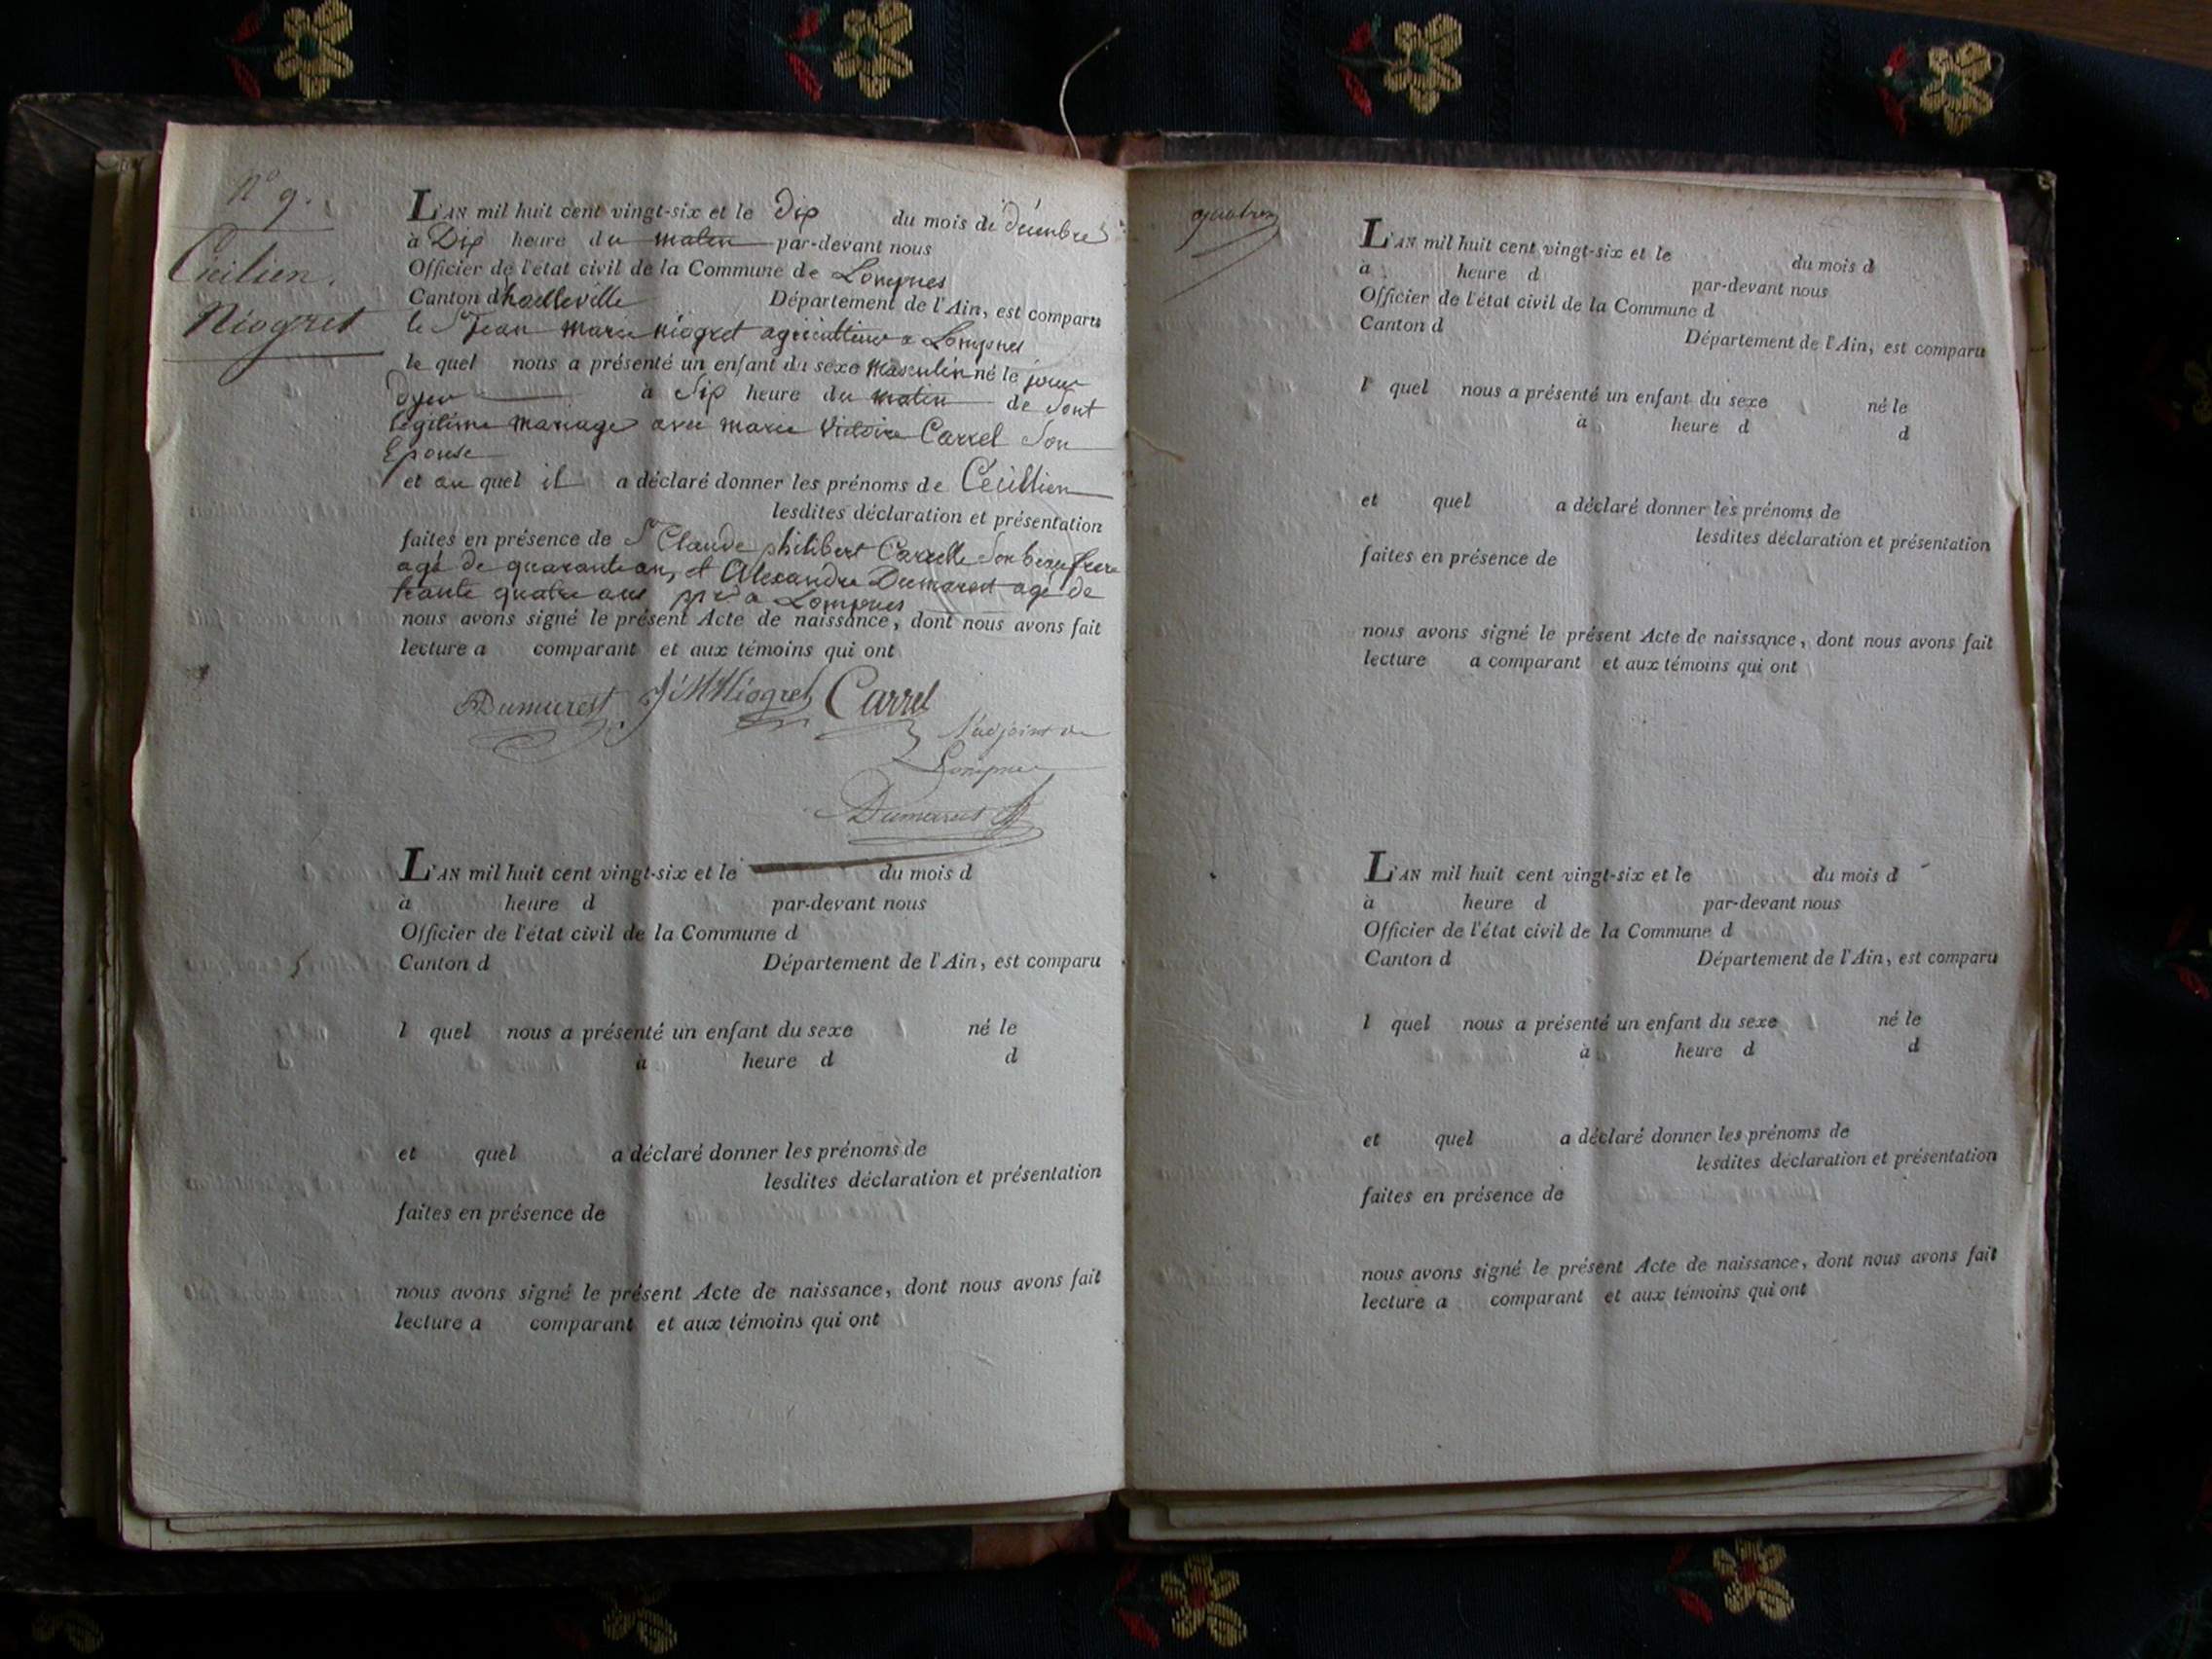 N° 9.
Cicilien.
Niogret
L'AN mil huit cent vingt-six et le Dix du mois de décembre
à Dix heure du matin par-devant nous
Officier de l'état civil de la Commune de Lompnes
Canton d'hauteville Département de l'Ain, est comparu
le Sr Jean Marie Niogret agriculteur a Lompnes
le quel nous a présenté un enfant du sexe Masculin né le jour
dyer à Six heure du matin de Sont
légitime Mariage avec Marie Victoire Carrel Son
Epouse
et au quel il a déclaré donner les prénoms de Cecillien
lesdites déclaration et présentation
faites en présence de Sr Claude philibert Carrelle Son beau frere
agé de quarante ans, et Alexandre Dumarest agé de
trante quatre ans a Lompnes
nous avons signé le présent Acte de naissance, dont nous avons fait
lecture a comparant et aux témoins qui ont
Dumarest JMNiogret Carrel
l'adjoint de
Lompnes
Dumarest
L'AN mil huit cent vingt-six et le du mois d
à heure d par-devant nous
Officier de l'état civil de la Commune d
Canton d Département de l'Ain, est comparu
l quel nous a présenté un enfant du sexe né le
à heure d d
et quel a déclaré donner les prénoms de
lesdites déclaration et présentation
faites en présence de
nous avons signé le présent Acte de naissance, dont nous avons fait
lecture a comparant et aux témoins qui ont
L'AN mil huit cent vingt-six et le du mois d
à heure d par-devant nous
Officier de l'état civil de la Commune d
Canton d Département de l'Ain, est comparu
l quel nous a présenté un enfant du sexe né le
à heure d d
et quel a déclaré donner les prénoms de
lesdites déclaration et présentation
faites en présence de
nous avons signé le présent Acte de naissance, dont nous avons fait
lecture a comparant et aux témoins qui ont
L'AN mil huit cent vingt-six et le du mois d
à heure d par-devant nous
Officier de l'état civil de la Commune d
Canton d Département de l'Ain, est comparu
l quel nous a présenté un enfant du sexe né le
à heure d d
et quel a déclaré donner les prénoms de
lesdites déclaration et présentation
faites en présence de
nous avons signé le présent Acte de naissance, dont nous avons fait
lecture a comparant et aux témoins qui ont